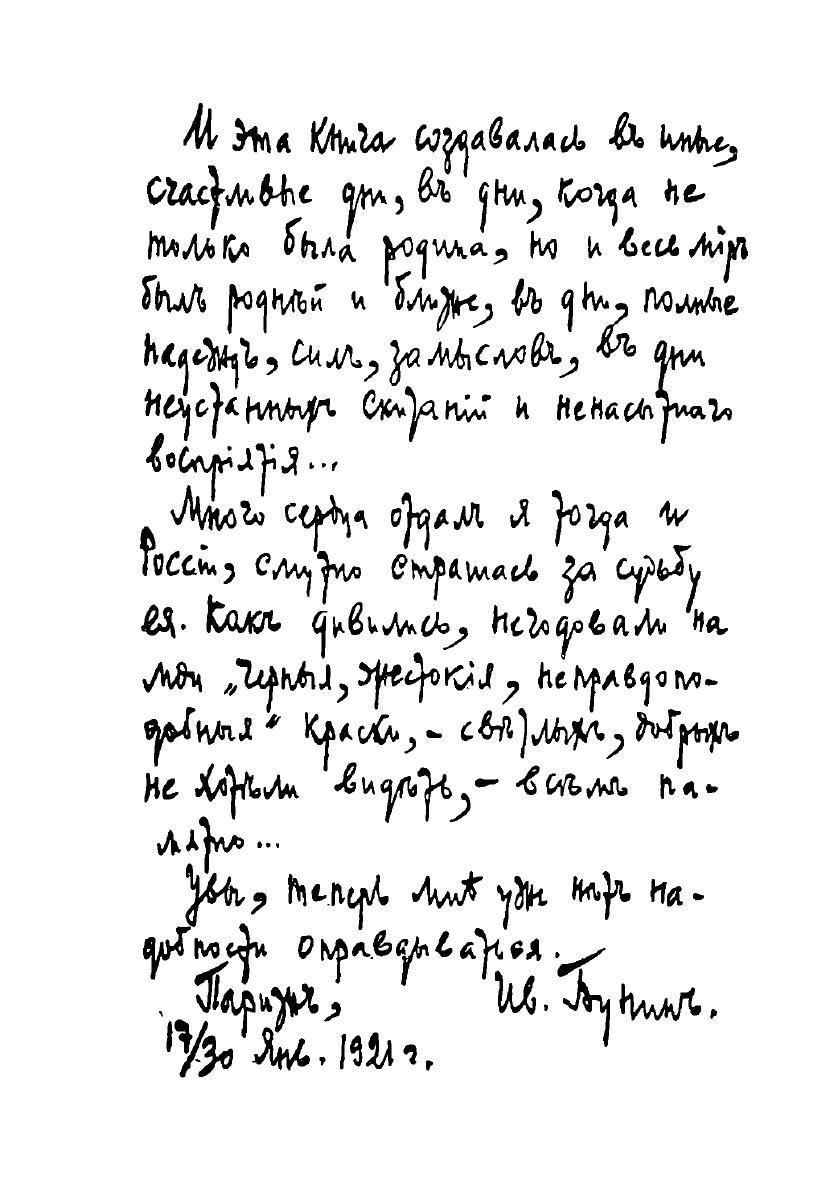 И эта книга создавалась въ иные,
счастливые дни, въ дни, когда не
только была родина, но и весь мiръ
былъ роднѣй и ближе, въ дни, полные
надеждъ, силъ, замысловъ, въ дни
неустанныхъ скитанiй и ненасытнаго
воспрiятiя...
Много сердца отдалъ я тогда и
Россiи, смутно страшась за судьбу
ея. Какъ дивились, негодовали на
мои „черныя, жестокiя, неправдопо-
добныя“ краски, – свѣтлыхъ, добрыхъ
не хотѣли видѣть, – всѣмъ па-
мятно...
Увы, теперь мнѣ уже нѣтъ на-
добности оправдываться.
Парижъ, Ив. Бунинъ.
17/30 Янв. 1921 г.